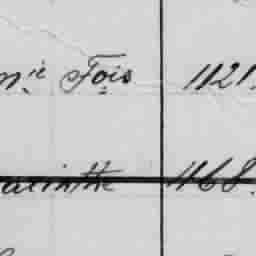 n.ie Fois 1121
acinthe 1168.